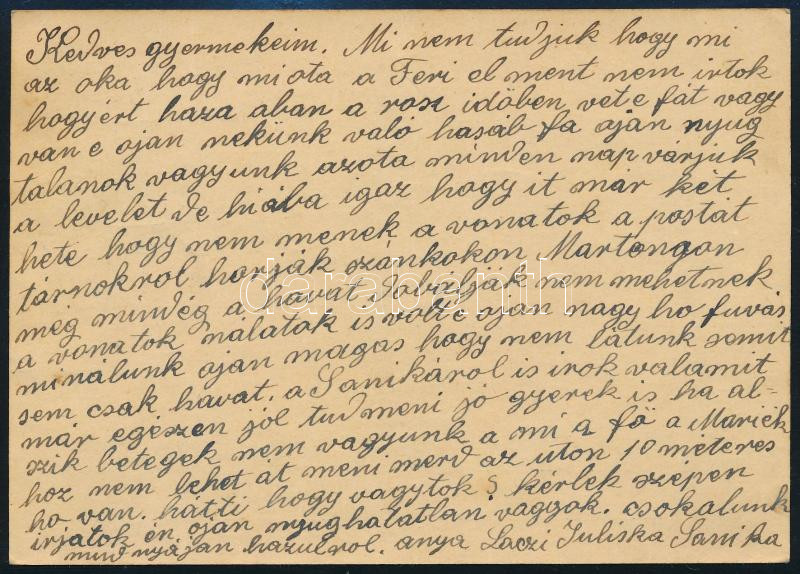 Kedves gyermekeim. Mi nem tudjuk hogy mi
az oka hogy miota a Feri el ment nem irtok
hogyért haza aban a rosz időben vet e fát vagy
van e ojan nekünk való hasáb fa ojan nyug
talanok vagyunk azota minden nap várjuk
a levelet de hiába igaz hogy it már két
hete hogy nem menek a vonatok a postát
tárnokrol horják szánkokon Martongon
meg mindég a havat dobálják nem mehetnek
a vonatok nálatok is volt e ojan nagy ho fuvás
minálunk ojan magas hogy nem látunk semit
sem csak havat. a Sanikárol is irok valamit
már egészen jól tud meni jó gyerek is ha al-
szik betegek nem vagyunk a mi a fő a Mariék
hoz nem lehet át meni merd az uton 10 méteres
ho van. hátti hogy vagytok s kérlek szépen
irjatok én ojan nyughatatlan vagyok. csokalunk
mind nyájan hazulrol. anya Laczi Juliska Sanika
darabanth